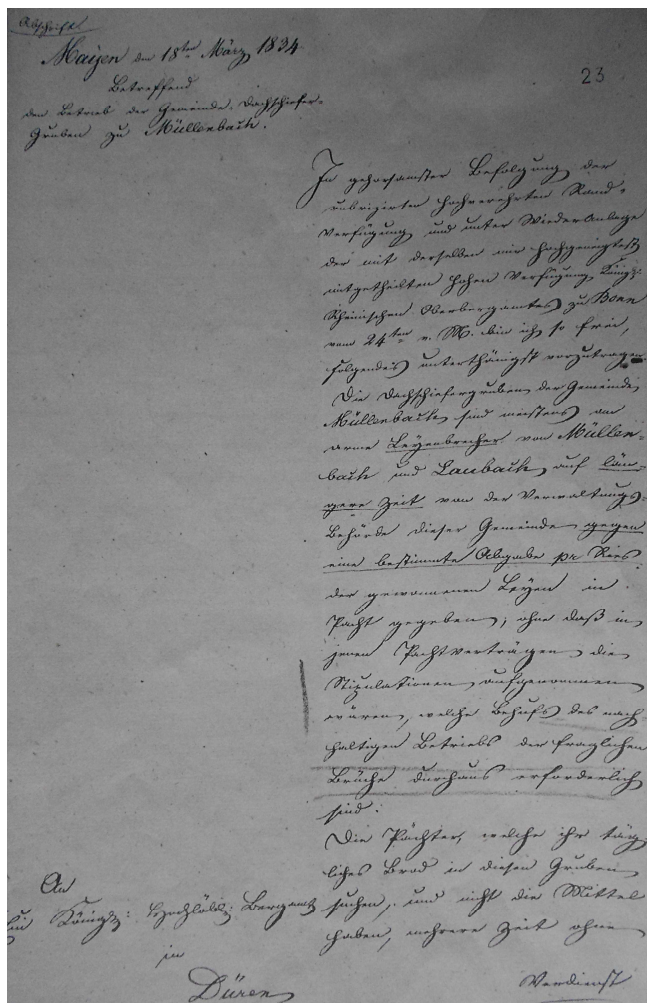 Abschrift
Mayen den 18ten März 1834
23
Betreffend
den Betrieb der Gemeinde-Dachschiefer-
Gruben zu Müllenbach.
In gehorsamster Befolgung der
rubrizirten hochverehrten Rand-
Verfügung und unter Wiederanlage
der mit derselben mir hochgeneigtest
mitgetheilten hohen Verfügung Königl:
Rheinischen Oberbergamtes zu Bonn
vom 24ten v. M. bin ich so frei,
folgendes unterthänigst vorzutragen.
Die Dachschiefergruben der Gemeinde
Müllenbach sind meistens an
arme Leyenbrecher von Müllen-
bach und Laubach auf län-
gere Zeit von der Verwaltungs-
Behörde dieser Gemeinde gegen
eine bestimmte Abgabe pr Ries
der gewonnenen Leyen in
Pacht gegeben, ohne daß in
jenen Pachtverträgen die
Stipulationen aufgenommen
wären, welche Behufs des nach-
haltigen Betriebs der fraglichen
Brüche durchaus erforderlich
sind.
Die Pächter, welche ihr täg-
liches Brod in diesen Gruben
suchen, und nicht die Mittel
haben, mehrere Zeit ohne
Verdienst
An
ein Königl: Hochlöbl: Bergamt
in
Düren